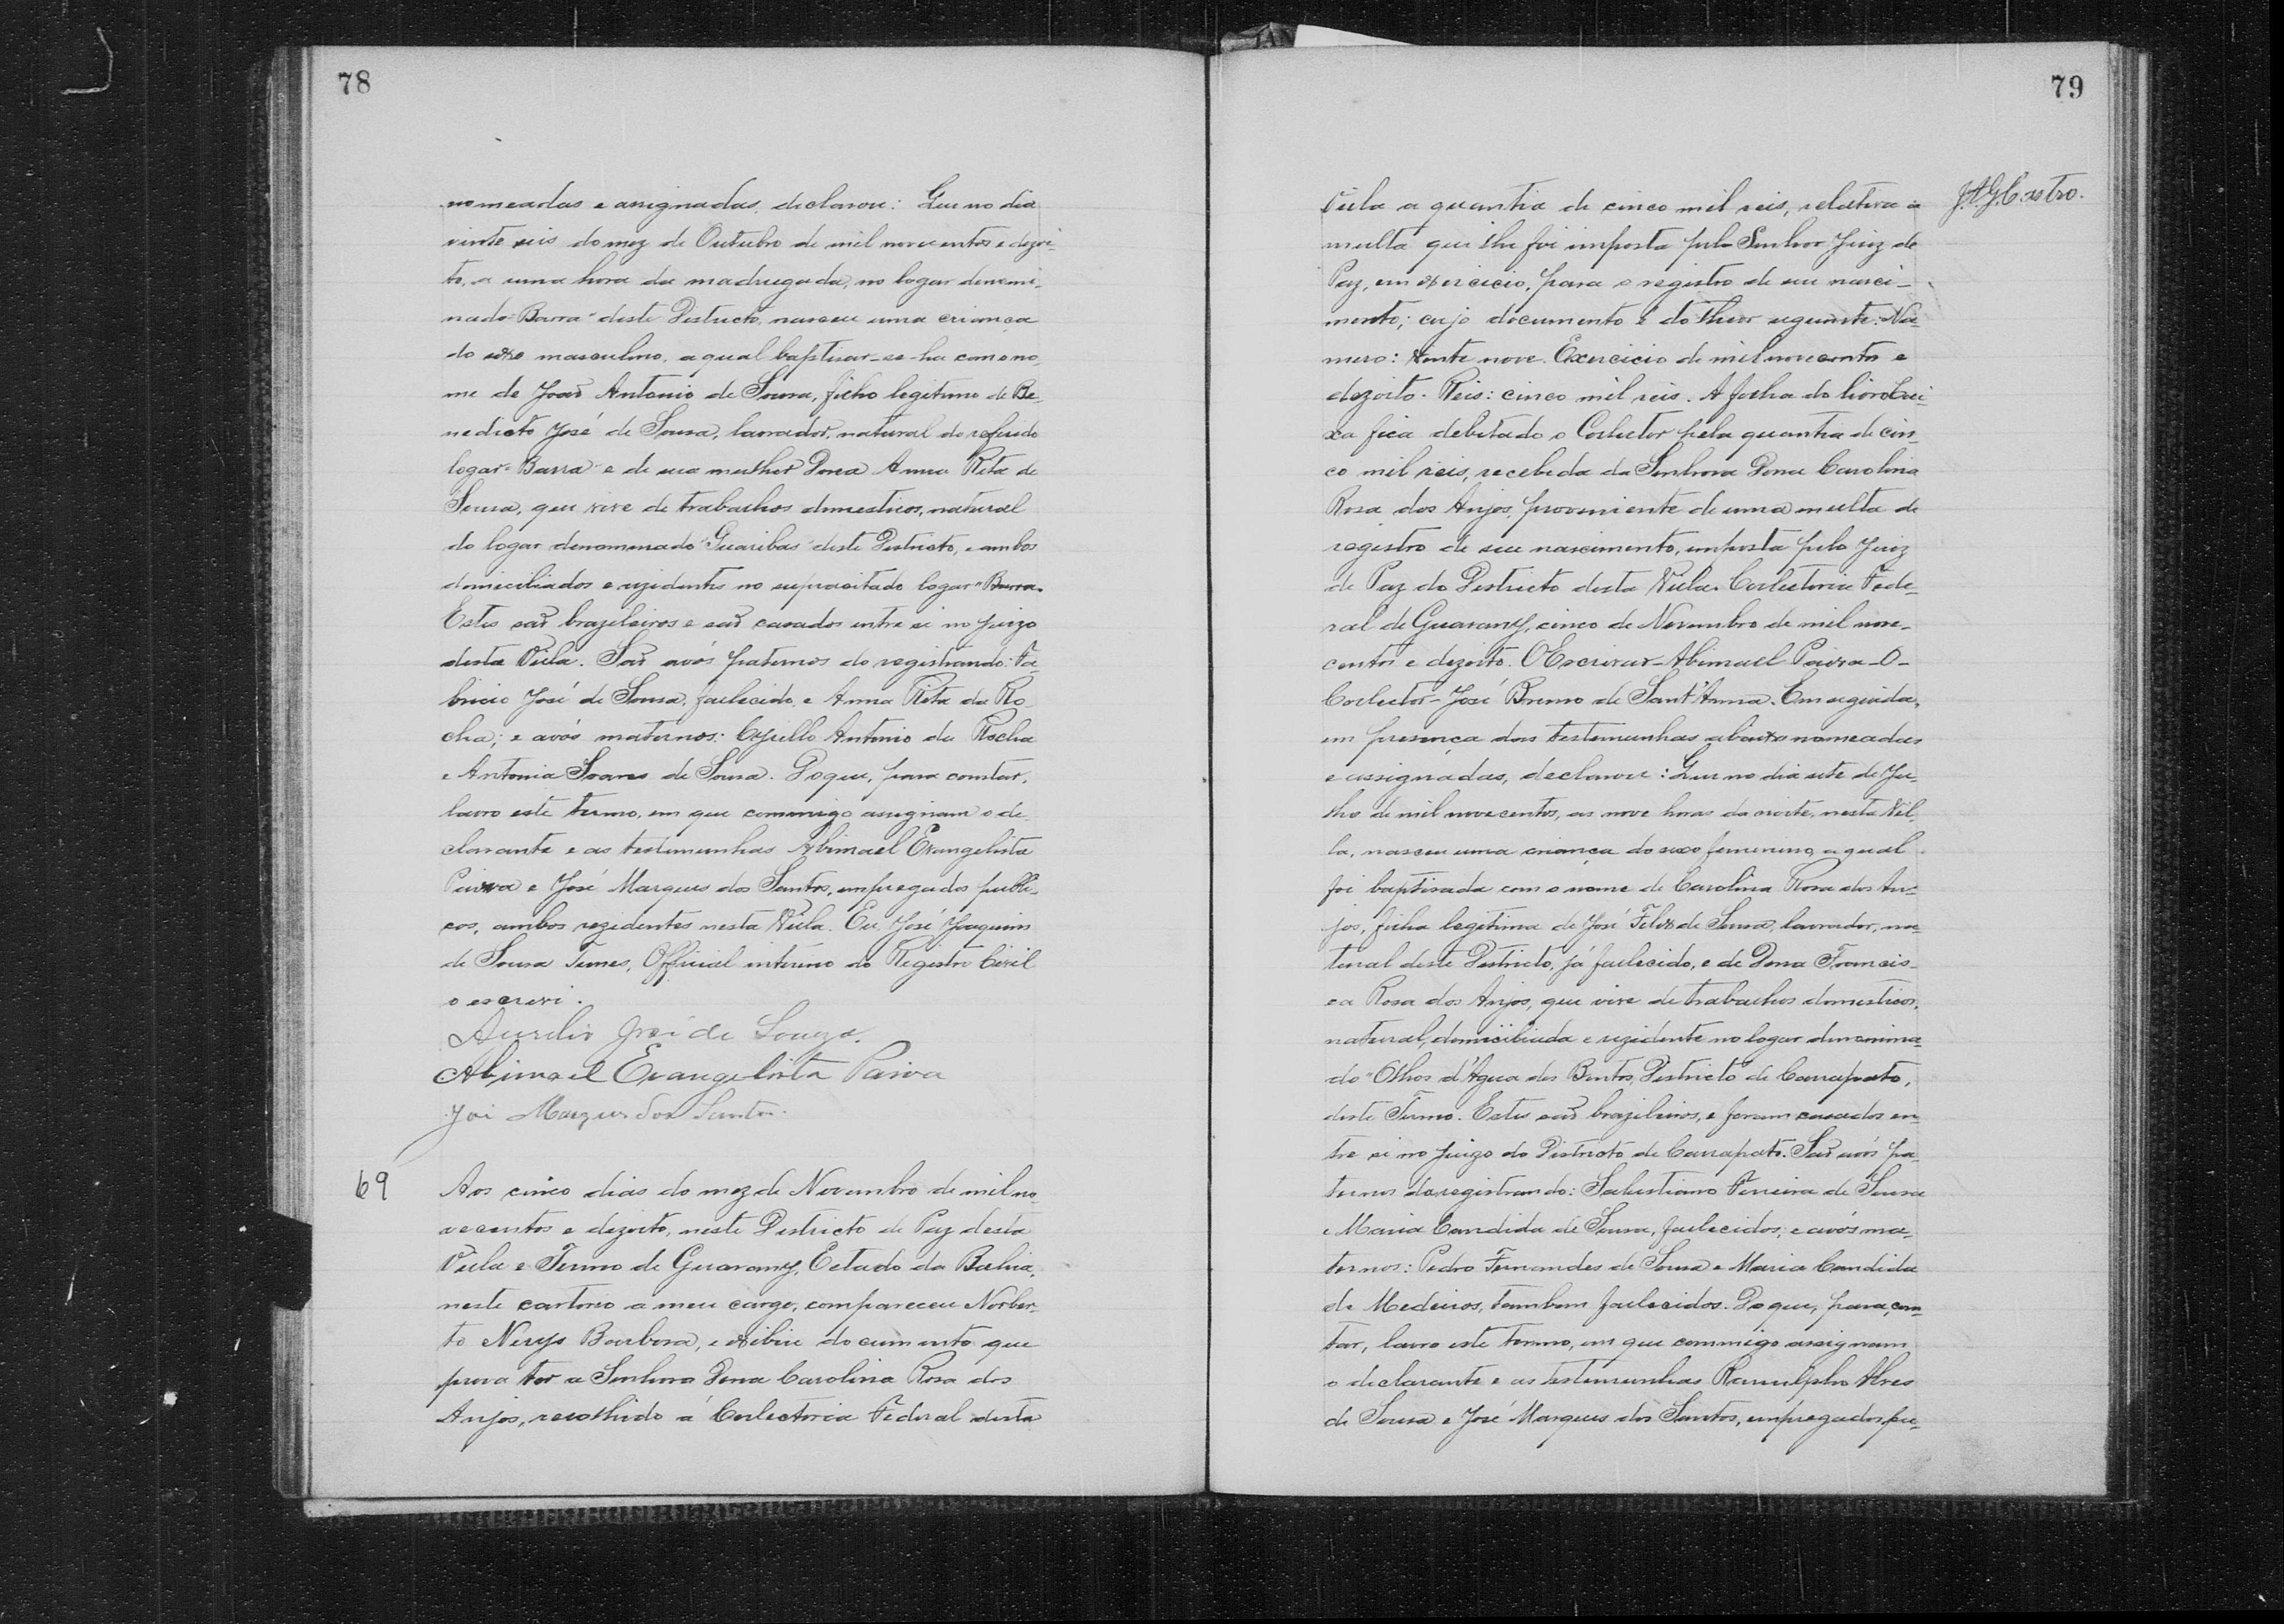 78
nomeadas e assignadas, declarou: Que no dia
vinte seis do mez de Outubro de mil novecentos e dezoi-
to, a uma hora da madrugada, no logar denomi-
nado "Barra" deste Districto, nasceu uma criança
do sexo masculino, a qual baptisar-se-ha com o no-
me de João Antonio de Sousa, filho legitimo de Be-
nedicto José de Sousa, lavrador, natural do referido
logar "Barra" e de sua mulher Dona Anna Rita de
Sousa, que vive de trabalhos domesticos, natural
do logar denominado "Guaribas" deste Districto, e ambos
domiciliados e rezidentes no supracitado logar "Barra.
Estes são brazileiros e são casados entre si no juizo
desta Villa. São avós paternos do registrando: Fa-
bricio José de Sousa, fallecido, e Anna Rita da Ro-
cha; e avós maternos: Cyrillo Antonio da Rocha
e Antonia Soares de Sousa. Do que, para constar,
lavro este termo, em que commigo assignam o de-
clarante e as testemunhas Abimael Evangelista
Paiva e José Marques dos Santos, empregados publi-
cos, ambos rezidentes nesta Villa. Eu, José Joaquim
de Sousa Tunes, Official interino do Registro Civil
o escrevi.
Aurelio José de Souza.
Abimael Evangelista Paiva
José Marques dos Santos.
69
Aos cinco dias do mez de Novembro de mil no-
vecentos e dezoito, neste Districto de Paz desta
Villa e Termo de Guarany, Estado da Bahia,
neste cartorio a meu cargo, compareceu Norber-
to Nerys Barbosa, e exibiu documento que
prova ter a Senhora Dona Carolina Rosa dos
Anjos, recolhido á Collectoria Federal desta
79
J.A.G.Castro.
Villa a quantia de cinco mil reis, relativa a
multa que lhe foi imposta pelo Senhor Juiz de
Paz, em exercicio, para o registro de seu nasci-
mento; cujo documento é do theor seguinte: Nu-
mero: vinte nove. Exercicio de mil novecentos e
dezoito. Reis: cinco mil reis. A folha do livro Cai-
xa fica debitado o Collector pela quantia de cin-
co mil reis, recebida da Senhora Dona Carolina
Rosa dos Anjos, proveniente de uma multa de
registro de seu nascimento, imposta pelo Juiz
de Paz do Districto desta Villa. Collectoria Fede-
ral de Guarany, cinco de Novembro de mil nove-
centos e dezoito. O Escrivão - Abimael Paiva - O -
Collector - José Bruno de Sant'Anna. Em seguida,
em presença das testemunhas abaixo nomeadas
e assignadas, declarou: Que no dia sete de Ju-
lho de mil novecentos, as nove horas da noite, nesta Vil-
la, nasceu uma criança do sexo feminino, a qual
foi baptisada com o nome de Carolina Rosa dos An-
jos, filha legitima de José Felix de Sousa, lavrador, na-
tural deste Districto, já fallecido, e de Dona Francis-
ca Rosa dos Anjos, que vive de trabalhos domesticos,
natural, domiciliada e rezidente no logar denomina-
do "Olhos d'Agua dos Bentos, Districto de Carrapato,
deste Termo. Estes são brazileiros, e foram casados en-
tre si no juizo do Districto de Carrapato. São avós pa-
ternos do registrando: Salustiano Ferreira de Sousa
e Maria Candida de Sousa, fallecidos; e avós ma-
ternos: Pedro Fernandes de Sousa e Maria Candida
de Medeiros, tambem fallecidos. Do que, para cons-
tar, lavro este termo, em que commigo assignam
o declarante e as testemunhas Ranulpho Alves
de Sousa e José Marques dos Santos, empregados pu-